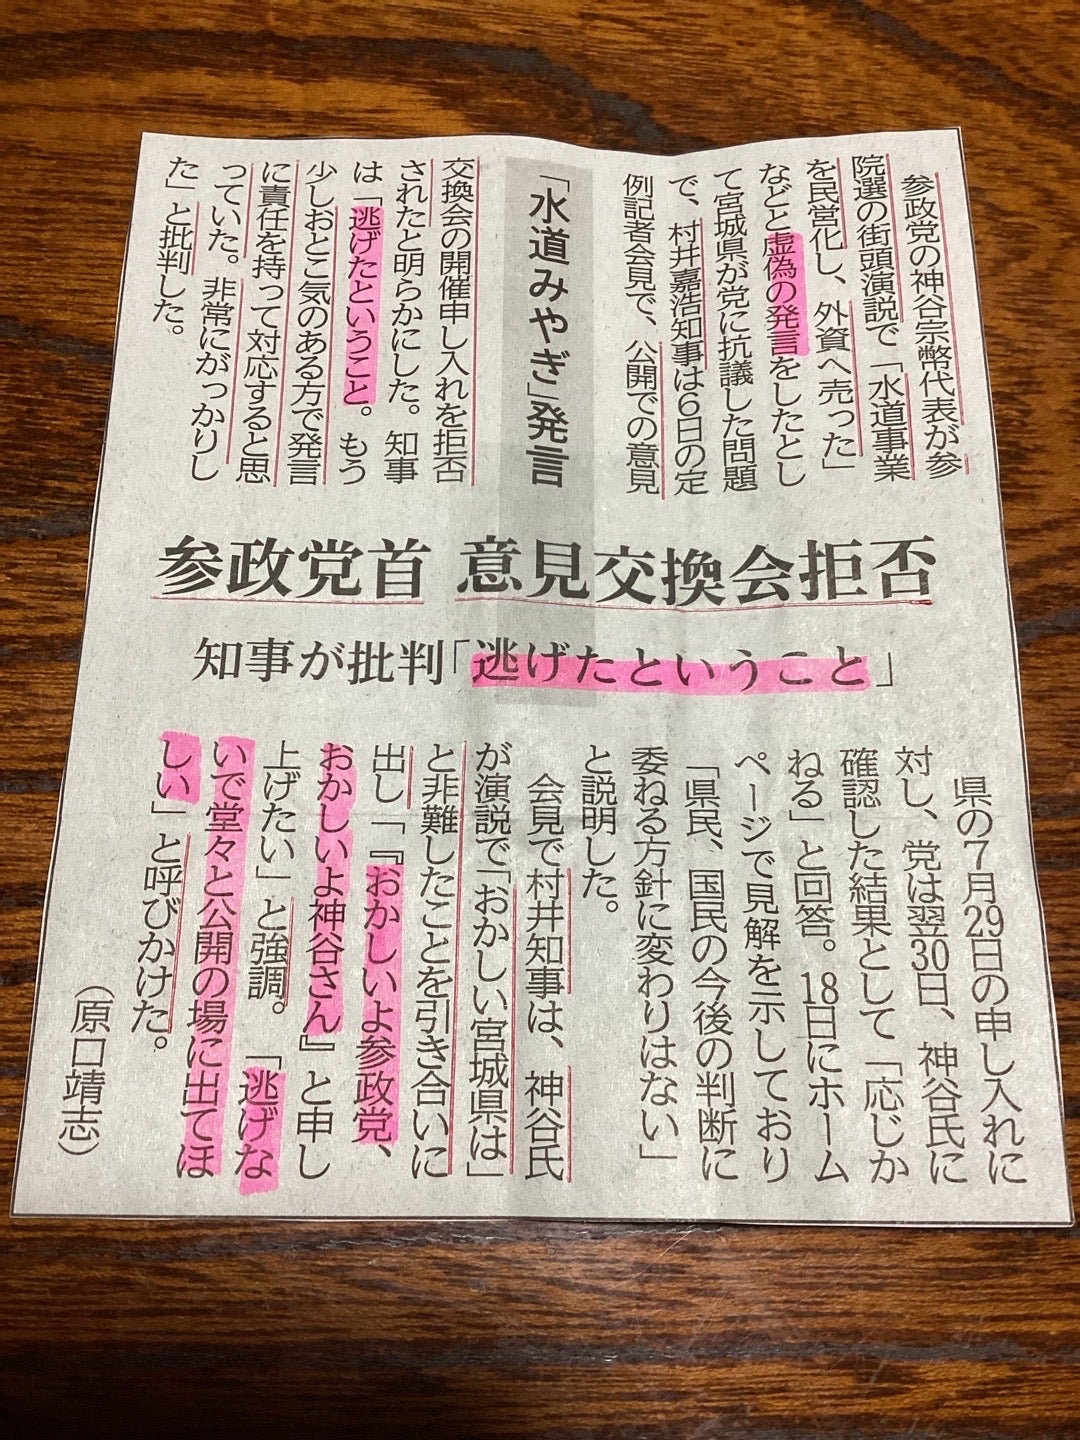 「水道みやぎ」発言
参政党首 意見交換会拒否
知事が批判「逃げたということ」
参政党の神谷宗幣代表が参
院選の街頭演説で「水道事業
を民営化し、外資へ売った」
などと虚偽の発言をしたとし
て宮城県が党に抗議した問題
で、村井嘉浩知事は6日の定
例記者会見で、公開での意見
交換会の開催申し入れを拒否
されたと明らかにした。知事
は「逃げたということ。もう
少しおとこ気のある方で発言
に責任を持って対応すると思
っていた。非常にがっかりし
た」と批判した。
県の7月29日の申し入れに
対し、党は翌30日、神谷氏に
確認した結果として「応じか
ねる」と回答。18日にホーム
ページで見解を示しており
「県民、国民の今後の判断に
委ねる方針に変わりはない」
と説明した。
会見で村井知事は、神谷氏
が演説で「おかしい宮城県は」
と非難したことを引き合いに
出し「『おかしいよ参政党、
おかしいよ神谷さん』と申し
上げたい」と強調。「逃げな
いで堂々と公開の場に出てほ
しい」と呼びかけた。
（原口靖志）